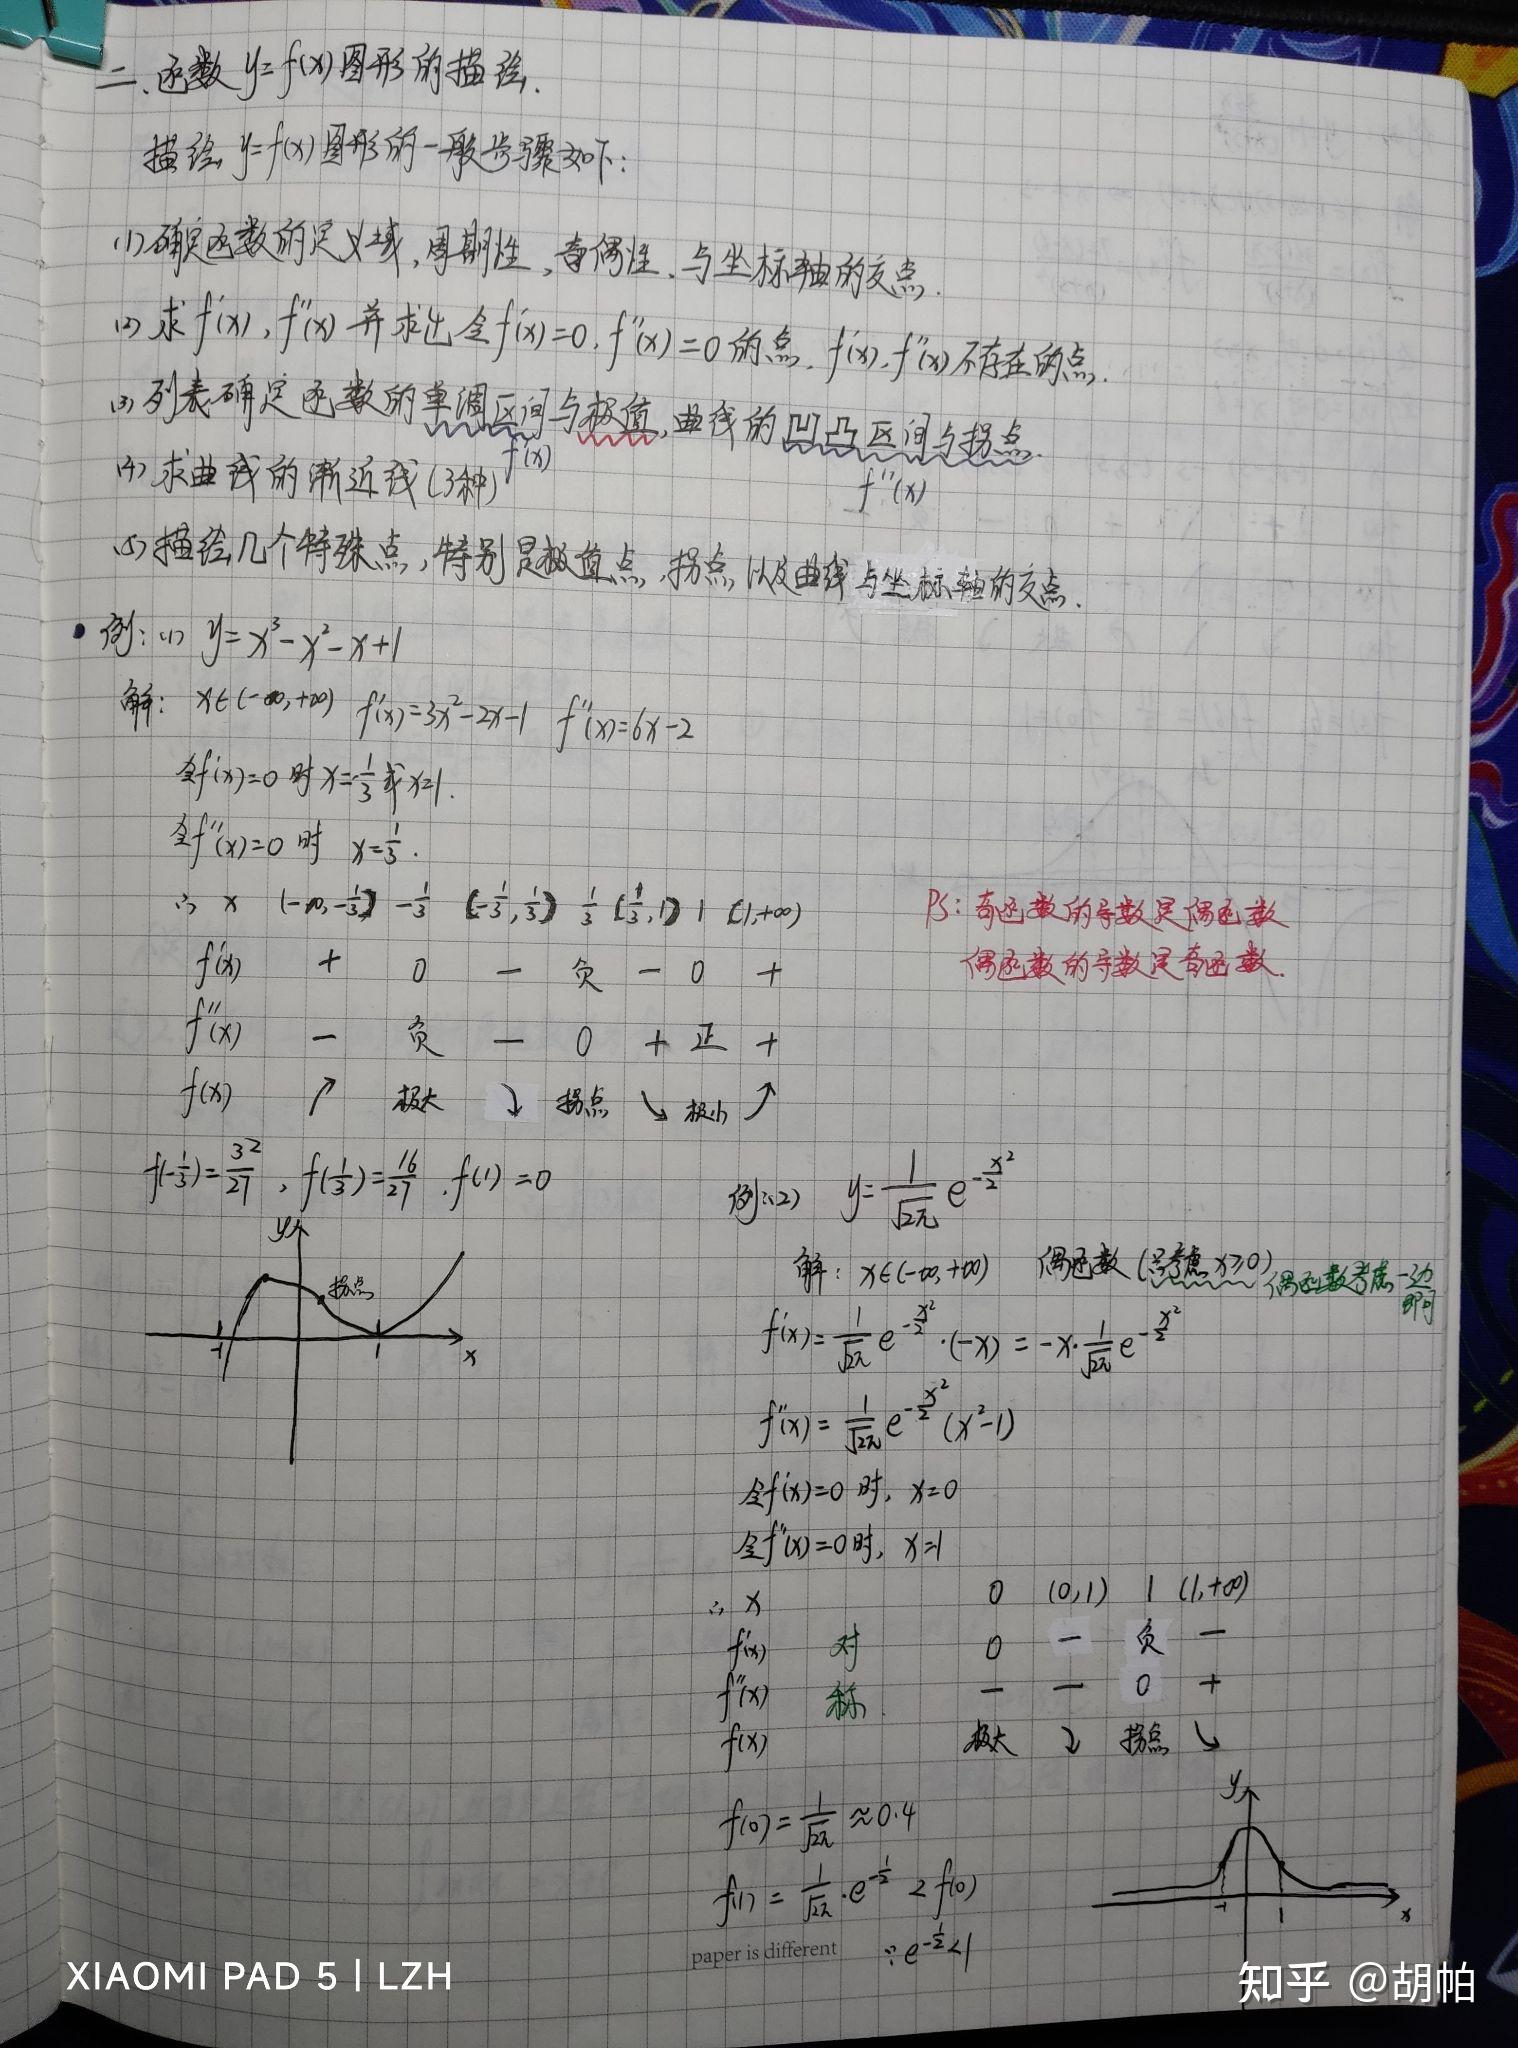 二、函数 y=f(x)图形的描绘.
描绘 y=f(x)图形的一般步骤如下:
(1) 确定函数的定义域,周期性,奇偶性、与坐标轴的交点.
(2) 求 f'(x), f''(x) 并求出令f'(x)=0, f''(x)=0的点, f'(x)、f''(x)不存在的点.
(3) 列表确定函数的单调区间与极值,曲线的凹凸区间与拐点.
f'(x)
f''(x)
(4) 求曲线的渐近线(3种)
(5) 描绘几个特殊点,特别是极值点,拐点,以及曲线与坐标轴的交点.
例: (1) y=x³-x²-x+1
解: x∈(-∞,+∞) f'(x)=3x²-2x-1 f''(x)=6x-2
令f'(x)=0 时 x=-1/3 或 x=1.
令f''(x)=0 时 x=1/3.
∴ x (-∞,-1/3) -1/3 (-1/3,1/3) 1/3 (1/3,1) 1 (1,+∞)
f'(x) + 0 - 负 - 0 +
f''(x) - 负 - 0 + 正 +
f(x) ↗ 极大 ↘ 拐点 ↘ 极小 ↗
PS: 奇函数的导数是偶函数
偶函数的导数是奇函数.
f(-1/3)=32/27, f(1/3)=16/27, f(1)=0
y
拐点
-1 1 x
例:(2) y=1/√2π e^(-x²/2)
解: x∈(-∞,+∞) 偶函数(只考虑 x≥0)
偶函数考虑一边
即可
f'(x)=1/√2π e^(-x²/2)·(-x)=-x·1/√2π e^(-x²/2)
f''(x)=1/√2π e^(-x²/2)(x²-1)
令f'(x)=0 时, x=0
令f''(x)=0时, x=1
∴ x 0 (0,1) 1 (1,+∞)
f'(x) 对 0 - 负 -
f''(x) 称 - - 0 +
f(x) 极大 ↘ 拐点 ↘
f(0)=1/√2π≈0.4
f(1)=1/√2π·e^(-1/2)<f(0)
∵e^(-1/2)<1
y
-1 1 x
paper is different
XIAOMI PAD 5 | LZH
知乎 @胡帕